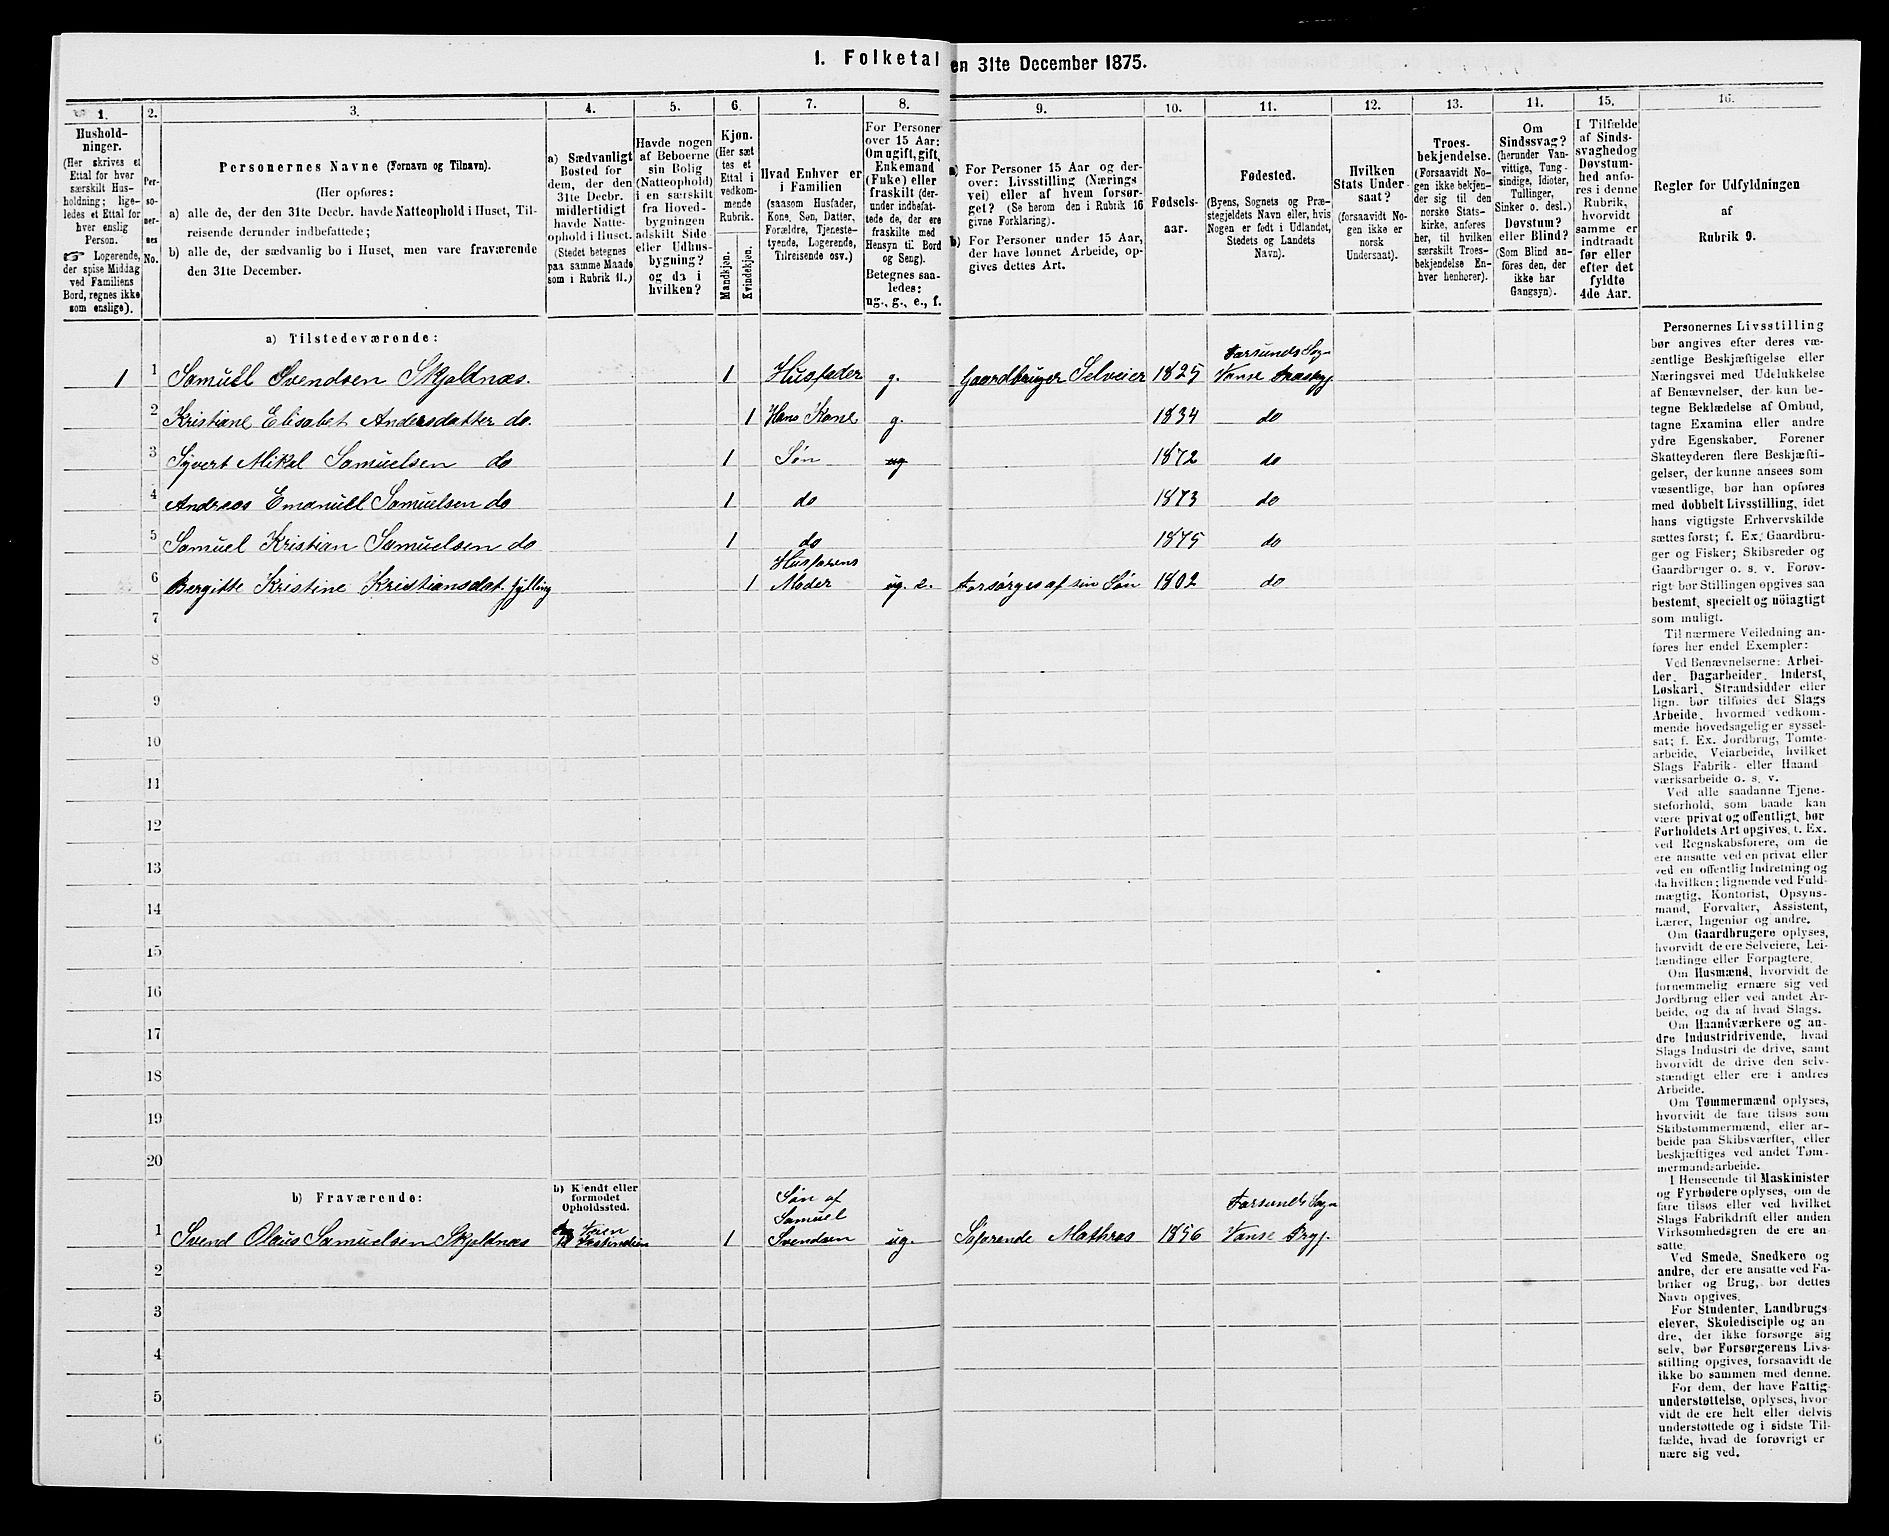 1. Folketal
en 31te December 1875.
1.
Hushold-
ninger.
(Her skrives et
Ettal for hver
særskilt Hus-
holdning; lige-
ledes et Ettal for
hver enslig
Person.
☞ Logerende,
der spise Middag
ved Familiens
Bord, regnes ikke
som enslige).
2.
Per-
so-
ner-
nes
No.
3.
Personernes Navne (Fornavn og Tilnavn).
(Her opføres:
a) alle de, der den 31te Decbr. havde Natteophold i Huset, Til-
reisende derunder indbefattede;
b) alle de, der sædvanlig bo i Huset, men vare fraværende
den 31te December.
4.
a) Sædvanligt
Bosted for
dem, der den
31te Decbr.
midlertidigt
havde Natte-
ophold i Huset.
(Stedet betegnes
paa samme Maade
som i Rubrik 11.)
5.
Havde nogen
af Beboerne
sin Bolig
(Natteophold)
i en særskilt
fra Hoved-
bygningen
adskilt Side-
eller Udhus-
bygning?
og da i
hvilken?
6.
Kjøn.
(Her sæt-
tes et
Ettal i
vedkom-
mende
Rubrik.
Mandkjøn.
Kvindekjøn.
7.
Hvad Enhver er
i Familien
(saasom Husfader,
Kone, Søn, Datter,
Forældre, Tjeneste-
tyende, Logerende,
Tilreisende osv.)
8.
For Personer
over 15 Aar:
Om ugift, gift,
Enkemand
(Fuke) eller
fraskilt (der-
under indbefat-
tede de, der ere
fraskilte med
Hensyn til Bord
og Seng).
Betegnes saa-
ledes:
ug., g., e., f.
9.
a) For Personer 15 Aar og der-
over: Livsstilling (Nærings
vei) eller af hvem forsør-
get? (Se herom den i Rubrik 16
givne Forklaring).
b) For Personer under 15 Aar,
der have lønnet Arbeide, op-
gives dettes Art.
10.
Fødsels-
aar.
11.
Fødested.
(Byens, Sognets og Præ-
stegjeldets Navn eller, hvis
Nogen er født i Udlandet,
Stedets og Landets
Navn).
12.
Hvilken
Stats Under-
saat?
(forsaavidt No-
gen ikke er
norsk
Undersaat).
13.
Troes-
bekjendelse.
(Forsaavidt No-
gen ikke bekjen-
der sig til den
norske Stats-
kirke, anføres
her, til hvilken
særskilt Troes-
bekjendelse En-
hver henhører).
14.
Om
Sindssvag?
(herunder Van-
vittige, Tung-
sindige, Idioter,
Tullinger,
Sinker o. desl.)
Døvstum?
eller Blind?
(Som Blind an-
føres den, der
ikke har
Gangsyn).
15.
I Tilfælde
af Sinds-
svaghed og
Døvstum-
hed anfø-
res i denne
Rubrik,
hvorvidt
samme er
indtraadt
før eller
efter det
fyldte
4de Aar.
16.
Regler for Udfyldningen
af
Rubrik 9.
a) Tilstedeværende:
1 1 Samuel Svendsen Skjoldnæs. 1 Husfader g. Gaardbruger Selveier 1825 Farsunds Sogn Vanse
2 Kristiane Elisabet Andersdatter do. 1 Hans Kone g. 1834 do
3 Syvert Mikal Samuelsen do 1 Søn ug 1872 do
4 Andreas Emanuel Samuelsen do 1 do 1873 do
5 Samuel Kristian Samuelsen do 1 do 1875 do
6 Bergitte Kristine Kristiansdat. Jylling 1 Husfarens Moder ug. e. Forsørges af sin Søn 1802 do
7
8
9
10
11
12
13
14
15
16
17
18
19
20
b) Fraværende:
b) Kjendt eller
formodet
Opholdssted.
1 Svend Olaus Samuelsen Skjoldnæs Veien Vestindien 1 Søn af Samuel Svendsen ug. Søfarende Mathros 1856 Farsunds Sogn Vanse
2
3
4
5
6
Personernes Livsstilling
bør angives efter deres væ-
sentlige Beskjæftigelse eller
Næringsvei med Udelukkelse
af Benævnelser, der kun be-
tegne Beklædelse af Ombud,
tagne Examina eller andre
ydre Egenskaber. Forener
Skatteyderen flere Beskjæfti-
gelser, der kunne ansees som
væsentlige, bør han opføres
med dobbelt Livsstilling, idet
hans vigtigste Erhvervskilde
sættes først; f. Ex. Gaardbru-
ger og Fisker; Skibsreder og
Gaardbruger o. s. v. Forøv-
rigt bør Stillingen opgives saa
bestemt, specielt og nöiagtigt
som muligt.
Til nærmere Veiledning an-
føres her endel Exempler:
Ved Benævnelserne: Arbei-
der, Dagarbeider, Inderst,
Løskarl, Strandsidder eller
lign. bør tilføies det Slags
Arbeide, hvormed vedkom-
mende hovedsagelig er syssel-
sat; f. Ex. Jordbrug, Tomte-
arbeide, Veiarbeide, hvilket
Slags Fabrik- eller Haand
værksarbeide o. s. v.
Ved alle saadanne Tjene-
steforhold, som baade kan
være privat og offentligt, bør
Forholdets Art opgives, t. Ex.
ved Regnskabsførere, om de
ere ansatte ved en privat eller
ved en offentlig Indretning og
da hvilken; lignende ved Fuld-
mægtig, Kontorist, Opsyns-
mand, Forvalter, Assistent,
Lærer, Ingeniør og andre.
Om Gaardbrugere oplyses,
hvorvidt de ere Selveiere, Lei-
lændinge eller Forpagtere.
Om Husmænd, hvorvidt de
fornemmelig ernære sig ved
Jordbrug eller ved andet Ar-
beide, og da af hvad Slags.
Om Haandværkere og an-
dre Industridrivende, hvad
Slags Industri de drive, samt
hvorvidt de drive den selv-
stændigt eller ere i andres
Arbeide.
Om Tømmermænd oplyses,
hvorvidt de fare tilsøs som
Skibstømmermænd, eller ar-
beide paa Skibsværfter, eller
beskjæftiges ved andet Tøm-
mermandsarbeide.
I Henseende til Maskinister
og Fyrbødere oplyses, om de
fare tilsøs eller ved hvilket
Slags Fabrikdrift eller anden
Virksomhedsgren de ere an-
satte.
Ved Smede, Snedkere og
andre, der ere ansatte ved Fa-
briker og Brug, bør dettes
Navn opgives.
For Studenter, Landbrugs
elever, Skoledisciple og an
dre, der ikke forsørge sig
selv, bør Forsørgerens Livs-
stilling opgives, forsaavidt de
ikke bo sammen med denne.
For dem, der have Fattig
understøttelse, oplyses, hvor-
vidt de ere helt eller delvis
understøttede og i sidste Til-
fælde, hvad de forøvrigt er
nære sig ved.